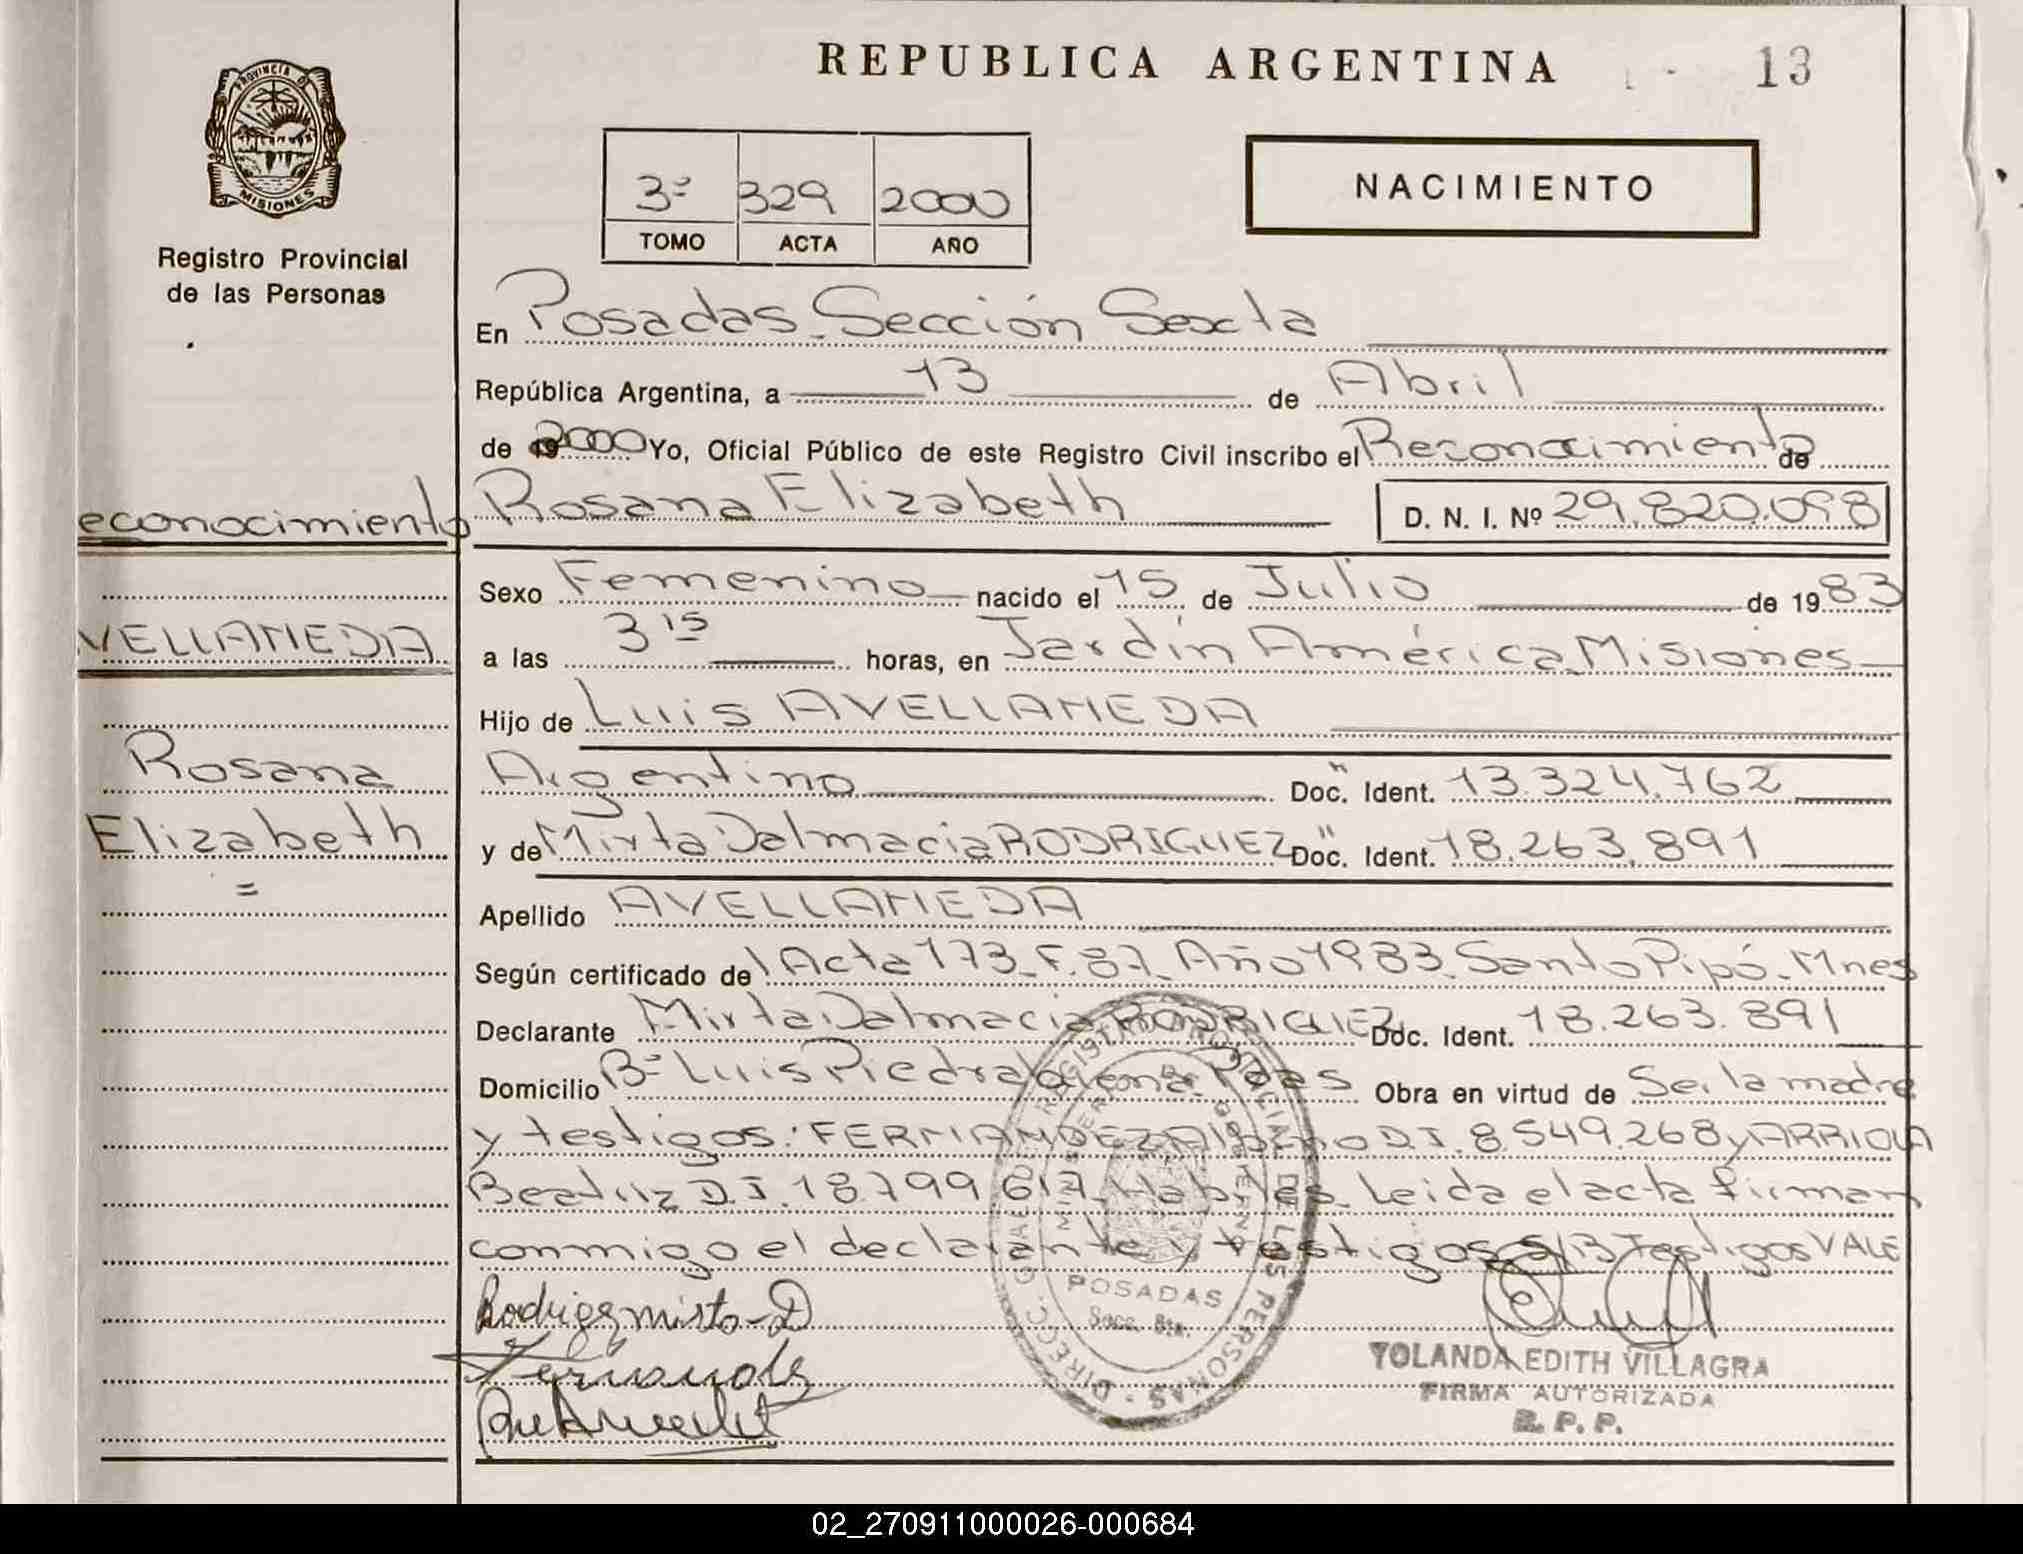 REPUBLICA ARGENTINA
13
PROVINCIA DE
MISIONES
Registro Provincial
de las Personas
3º 329 2000
TOMO ACTA AÑO
NACIMIENTO
En Posadas Sección Sexta
República Argentina, a 13 de Abril
de 2000 Yo, Oficial Público de este Registro Civil inscribo el Reconocimiento de
Rosana Elizabeth D. N. I. Nº 29.820.098
Sexo Femenino nacido el 15 de Julio de 1983
a las 3 15 horas, en Jardín América Misiones
Hijo de Luis AVELLANEDA
Argentino Doc. Ident. 13.324.762
y de Mirta Dalmacia RODRIGUEZ Doc. Ident. 18.263.891
Apellido AVELLANEDA
Según certificado de Acta 173 F. 87 Año 1983 Santo Pipó Mnes
Declarante Mirta Dalmacia RODRIGUEZ Doc. Ident. 18.263.891
Domicilio Bº Luis Piedrabuena Pdas Obra en virtud de Ser la madre
y testigos: FERNANDEZ Albino D.I. 8.549.268 y ARRIOLA
Beatriz D.I. 18.799.617 Hábiles Leida el acta firman
conmigo el declarante y testigos S/B Testigos VALE
econocimiento
VELLANEDA
Rosana
Elizabeth
=
Rodriguez Mirta D
DIRECC. GRAL DE REGISTRO PROVINCIAL DE LAS PERSONAS
MINISTERIO DE GOBIERNO
POSADAS
Secc. 6ta.
YOLANDA EDITH VILLAGRA
FIRMA AUTORIZADA
R. P. P.
02_270911000026-000684